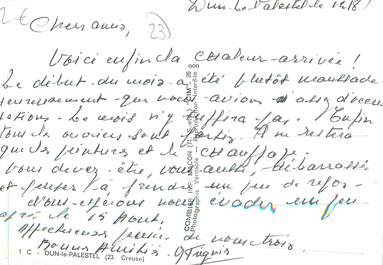 2 €
Dun-le-Palestel le 18/8
Chers amis, (23)
Voici enfin la chaleur arrivée !
Le début du mois a été plutôt maussade
heureusement que nous avions assez d'occu
pations. Le mois n'y suffira pas. Enfin
tous les ouvriers sont partis. Il me restera
que les peintures et le chauffage.
Vous devez être, vous aussi, débarrassés
et penser à prendre un peu de repos.
Nous espérons nous évader un peu
après le 15 Août.
Affectueuses pensées de nous trois.
Bonnes Amitiés.
1 C - DUN-le-PALESTEL (23. Creuse)
COMBIER IMP. MACON